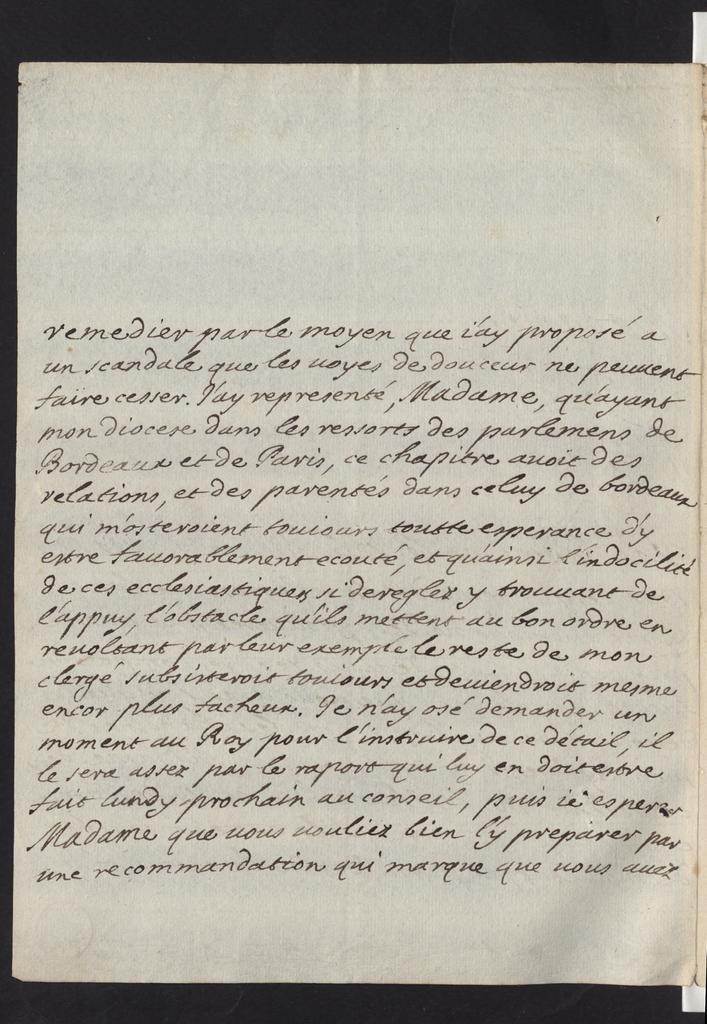 remedier par le moyen que i'ay proposé a
un scandale que les uoyes de douceur ne peuuent
faire cesser. J'ay representé, Madame, qu'ayant
mon diocese dans les ressorts des parlemens de
Bordeaux et de Paris, ce chapitre auoit des
relations, et des parentés dans celuy de bordeaux
qui m'osteroient touiours toutte esperance d'y
estre fauorablement ecouté, et qu'ainsi l'indocilité
de ces ecclesiastiques si dereglez y trouuant de
l'appuy, l'obstacle qu'ils mettent au bon ordre en
reuoltant par leur exemple le reste de mon
clergé subsisteroit touiours et deuiendroit mesme
encor plus facheux. Je n'ay osé demander un
moment au Roy pour l'instruire de ce détail, il
le sera assez par le raport qui luy en doit estre
fait lundy prochain au conseil, puis ie esperer
Madame que uous uouliez bien l'y preparer par
une recommandation qui marque que uous auez